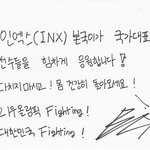 인엑스(INX) 본국이가 국가대표
선수들을 힘차게 응원합니다!
다치지마시고! 몸 건강히 돌아오세요!
리우올림픽 Fighting!
대한민국, Fighting!